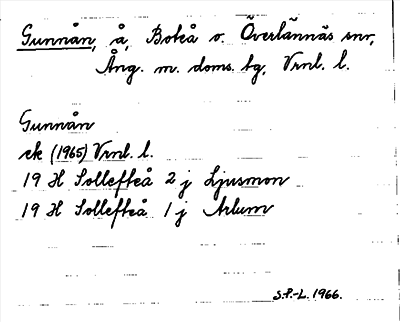 Gunnån, å, Boteå o. Överlännäs snr,
Ång. m. doms. bg, Vrnl. l.
Gunnån
ek (1965) Vrnl. l.
19 H Sollefteå 2 j Ljusmon
19 H Sollefteå 1 j Arlum
S.P.-L. 1966.